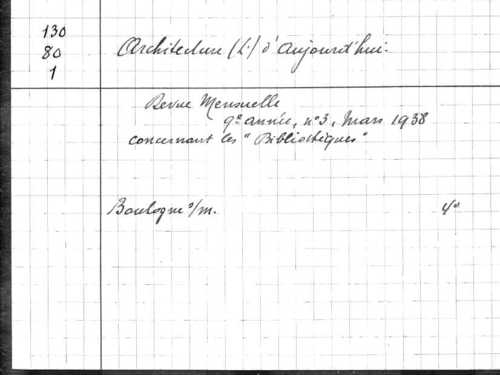 130
80
1
Architecture (L') d'Aujourd'hui.
Revue Mensuelle
9e année, n° 3, Mars 1938
concernant les "Bibliothèques"
Boulogne s/m. 4°